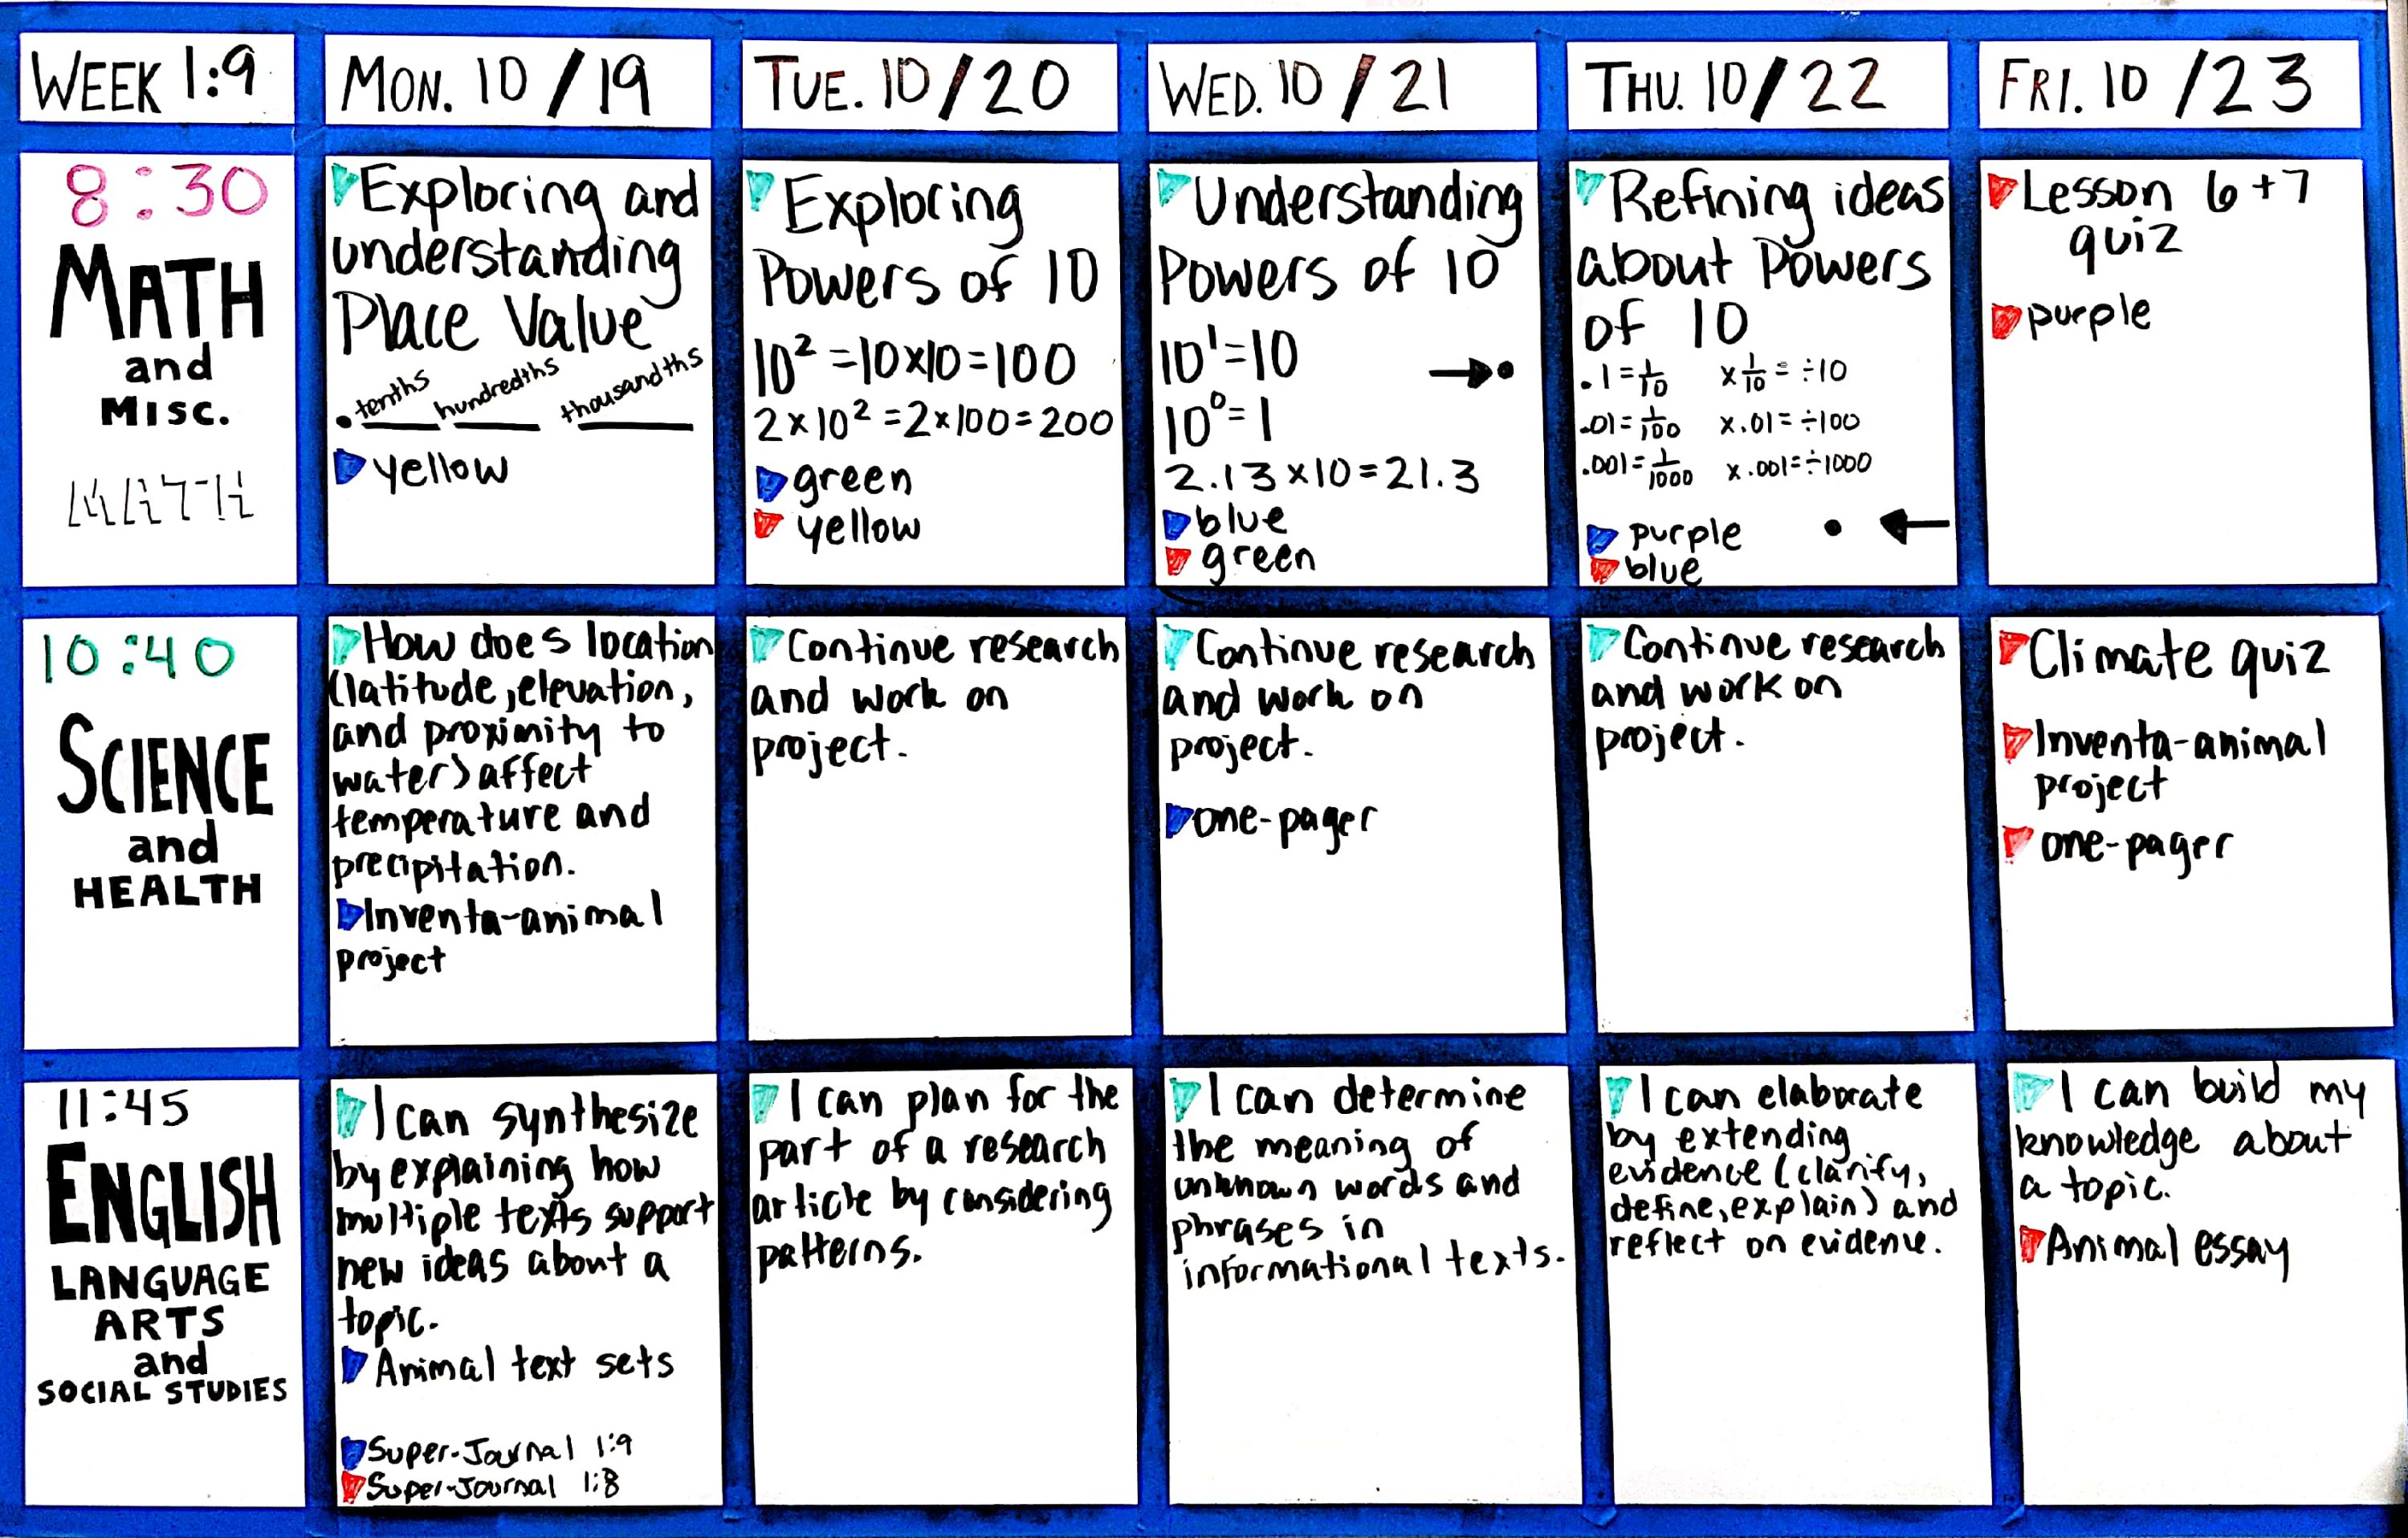 WEEK 1:9
MON. 10/19
TUE. 10/20
WED. 10/21
THU. 10/22
FRI. 10/23
8:30
MATH
and
MISC.
MATH
Exploring and
understanding
Place Value
. tenths hundredths thousandths
yellow
Exploring
Powers of 10
10² =10x10=100
2x10² =2x100=200
green
yellow
Understanding
Powers of 10
10¹=10 →•
10⁰=1
2.13x10=21.3
blue
green
Refining ideas
about Powers
of 10
.1=1/10 x 1/10 = ÷10
.01=1/100 x.01=÷100
.001=1/1000 x.001=÷1000
purple • ←
blue
Lesson 6+7
quiz
purple
10:40
SCIENCE
and
HEALTH
How does location
(latitude, elevation,
and proximity to
water) affect
temperature and
precipitation.
Inventa-animal
project
Continue research
and work on
project.
Continue research
and work on
project.
one-pager
Continue research
and work on
project.
Climate quiz
Inventa-animal
project
one-pager
11:45
ENGLISH
LANGUAGE
ARTS
and
SOCIAL STUDIES
I can synthesize
by explaining how
multiple texts support
new ideas about a
topic.
Animal text sets
Super-Journal 1:9
Super-Journal 1:8
I can plan for the
part of a research
article by considering
patterns.
I can determine
the meaning of
unknown words and
phrases in
informational texts.
I can elaborate
by extending
evidence (clarify,
define, explain) and
reflect on evidence.
I can build my
knowledge about
a topic.
Animal essay